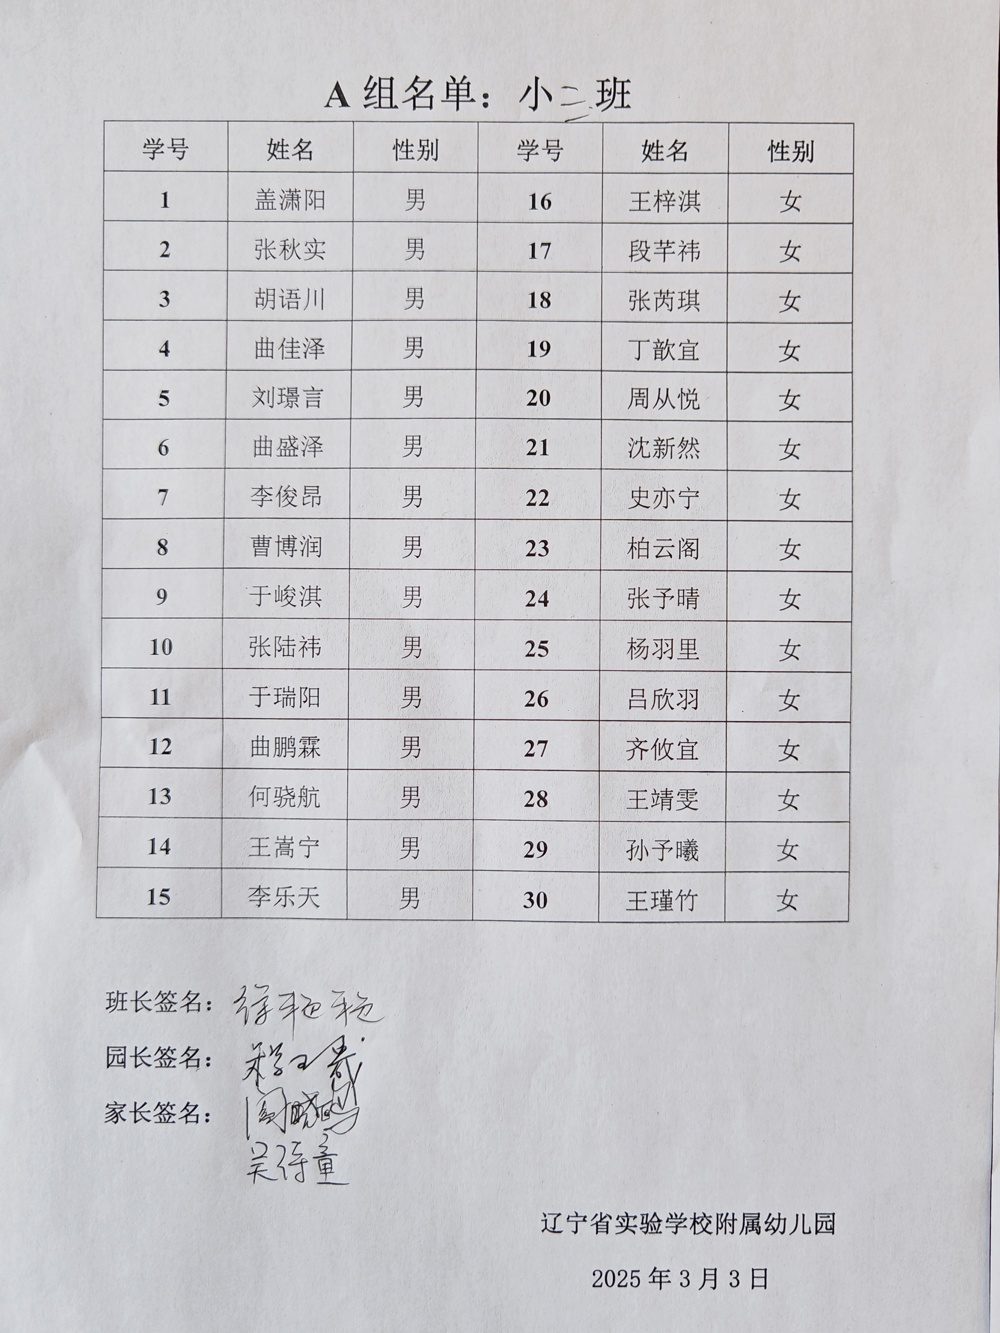 A 组名单：小二班
学号 姓名 性别 学号 姓名 性别
1 盖潇阳 男 16 王梓淇 女
2 张秋实 男 17 段芊祎 女
3 胡语川 男 18 张芮琪 女
4 曲佳泽 男 19 丁歆宜 女
5 刘璟言 男 20 周从悦 女
6 曲盛泽 男 21 沈新然 女
7 李俊昂 男 22 史亦宁 女
8 曹博润 男 23 柏云阁 女
9 于峻淇 男 24 张予晴 女
10 张陆祎 男 25 杨羽里 女
11 于瑞阳 男 26 吕欣羽 女
12 曲鹏霖 男 27 齐攸宜 女
13 何骁航 男 28 王靖雯 女
14 王嵩宁 男 29 孙予曦 女
15 李乐天 男 30 王瑾竹 女
班长签名：
园长签名：
家长签名：
辽宁省实验学校附属幼儿园
2025 年 3 月 3 日